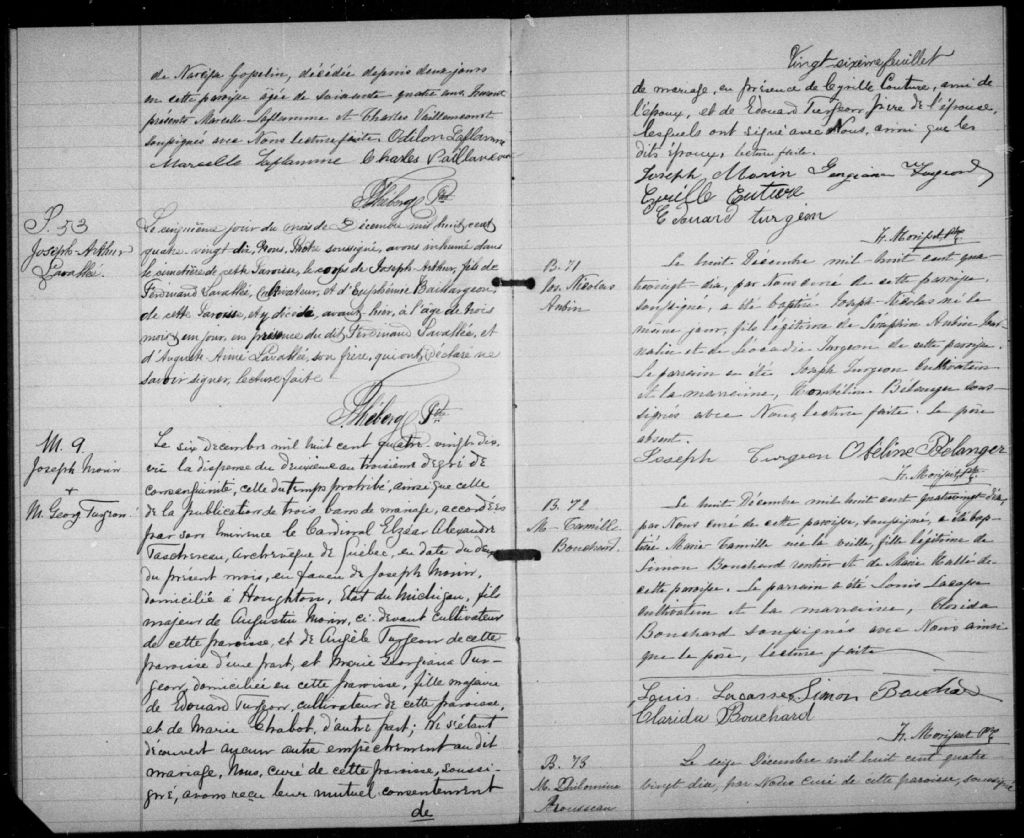 de Narcisse Gosselin, décédée depuis deux jours
en cette paroisse âgée de soixante quatre ans. Furent
présents Marcelle Laflamme et Charles Vaillancourt
soussignés avec Nous lecture faite. Odilon Laflamme
Marcelle Laflamme Charles Vaillancour
F Théberge Ptre
S. 53
Joseph-Arthur
Lavallée.
Le cinquième jour du mois de Décembre mil huit cent
quatre-vingt dix, Nous, Prêtre soussigné, avons inhumé dans
le cimetière de cette Paroisse, le corps de Joseph-Arthur, fils de
Ferdinand Lavallée, cultivateur, et d'Euphémie Baillargeon,
de cette Paroisse, et y décédé, avant hier, à l'âge de trois
mois et un jour, en présence du dit Ferdinand Lavallée, et
d'Auguste-Aimé Lavallée, son frère, qui ont déclaré ne
savoir signer, lecture faite
F Théberge Ptre
M. 9
Joseph Morin
+
M. Georg Turgeon
Le six decembre mil huit cent quatre-vingt dix,
vu la dispense du deuxième au troisième degré de
consanguinité, celle du temps prohibé, ainsi que celle
de la publication de trois bans de mariage, accordées
par son Eminence le Cardinal Elzéar Alexandre
Taschereau, Archevêque de Québec, en date du deux
du présent mois, en faveur de Joseph Morin,
domicilié à Houghton, Etat du Michigan, fils
majeur de Augustin Morin, ci-devant cultivateur
de cette paroisse, et de Angèle Turgeon de cette
paroisse d'une part, et Marie Georgiana Tur-
geon, domiciliée en cette paroisse, fille majeure
de Edouard Turgeon, cultivateur de cette paroisse,
et de Marie Chabot, d'autre part; Ne s'étant
découvert aucun autre empêchement au dit
mariage, Nous, curé de cette paroisse, soussi-
gné, avons reçu leur mutuel consentement
de
Vingt sixième feuillet
de mariage, en présence de Cyrille Couture, ami de
l'époux, et de Edouard Turgeon, frère de l'épouse,
lesquels ont signé avec Nous, ainsi que les
dits époux, lecture faite.
Joseph Morin Georgiana Turgeon
Cyrille Couture
Edouard Turgeon
F. Morisset Ptre
B. 71
Jos. Nicolas
Aubin
Le huit Décembre mil huit cent qua-
trevingt-dix, par Nous curé de cette paroisse,
soussigné, a été baptisé Joseph-Nicolas né le
même jour, fils légitime de Séraphin Aubin jour-
nalier et de Léocadie Turgeon de cette paroisse.
Le parrain a été Joseph Turgeon cultivateur
et la marraine, Bélanger sous-
signés avec Nous, lecture faite. Le père
absent.
Joseph Turgeon Obéline Bélanger
F. Morisset Ptre
B. 72
M. Camille
Bouchard.
Le huit Décembre mil huit cent quatrevingt dix,
par Nous curé de cette paroisse, soussigné, a été bap-
tisée Marie Camille née la veille, fille légitime de
Simon Bouchard rentier et de Marie Hallé de
cette paroisse. Le parrain a été Louis Lacasse
cultivateur et la marraine, Clorida
Bouchard soussignés avec Nous ainsi
que le père, lecture faite
Louis Lacasse Simon Bouchard
Clarida Bouchard
F. Morisset Ptre
B. 73
M. Philomine
Brousseau
Le seize Décembre mil huit cent quatre
vingt dix, par Nous curé de cette paroisse, soussigné